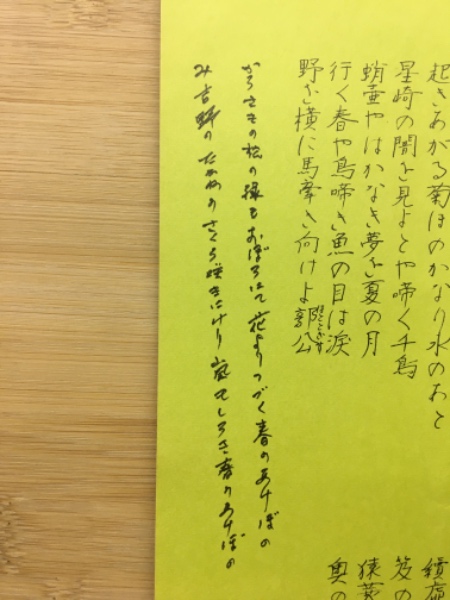 起きあがる菊ほのかなり水のあと
星崎の闇を見よとや啼く千鳥
蛸壷やはかなき夢を夏の月
行く春や鳥啼き魚の目は涙
野を横に馬牽き向けよ郭公
ほととぎす
からさきの松の緑もおぼろにて 花よりつづく春のあけぼの
み吉野の たかねのさくら咲きにけり 嵐もしろき春のあけぼの
續虚
笈の
猿蓑
奥の